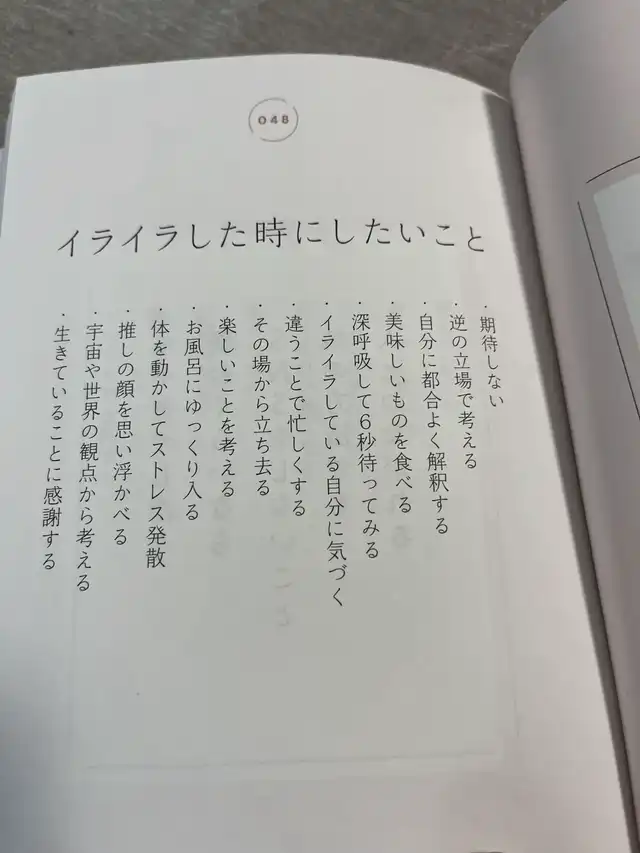 048
イライラした時にしたいこと
・期待しない
・逆の立場で考える
・自分に都合よく解釈する
・美味しいものを食べる
・深呼吸して6秒待ってみる
・イライラしている自分に気づく
・違うことで忙しくする
・その場から立ち去る
・楽しいことを考える
・お風呂にゆっくり入る
・体を動かしてストレス発散
・推しの顔を思い浮かべる
・宇宙や世界の観点から考える
・生きていることに感謝する